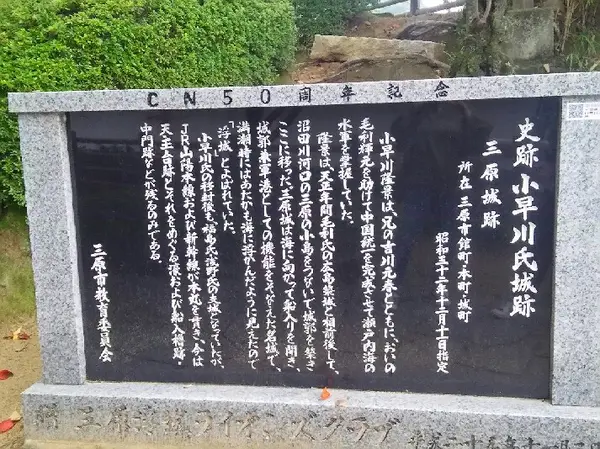 CN50周年記念
史跡 小早川氏城跡
三原城跡
所在 三原市館町・本町・城町
昭和三十二年十二月十一日指定
小早川隆景は、兄の吉川元春とともに、おいの
毛利輝元を助けて中国統一を完成させて瀬戸内海の
水軍を掌握していた。
隆景は、天正年間毛利氏の広島築城と相前後して、
沼田川河口の三原の小島をつないで城郭を築き
ここに移った。三原城は海に向かって船入りを開き、
城郭兼軍港としての機能をそなえた名城で、
満潮時にはあたかも海に浮かんだように見えたので
「浮城」とよばれていた。
小早川氏の移封後も福島・浅野氏の支城になっていたが、
JR山陽本線および新幹線が本丸を貫き、今は
天主台跡とそれをめぐる濠および船入櫓跡・
中門跡などが残るのみである。
三原市教育委員会
三原 ライオンズクラブ
平成二十五年十一月